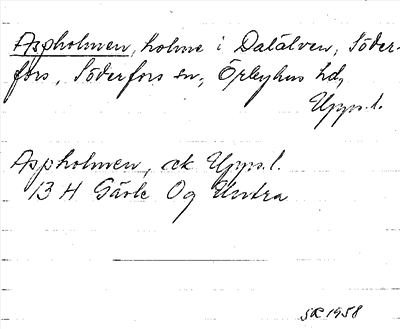 Aspholmen, holme i Dalälven, Söder-
fors, Söderfors sn, Örbyhus hd,
Upps. l.
Aspholmen, ek Upps. l.
13 H Gävle Og Untra
SK 1958